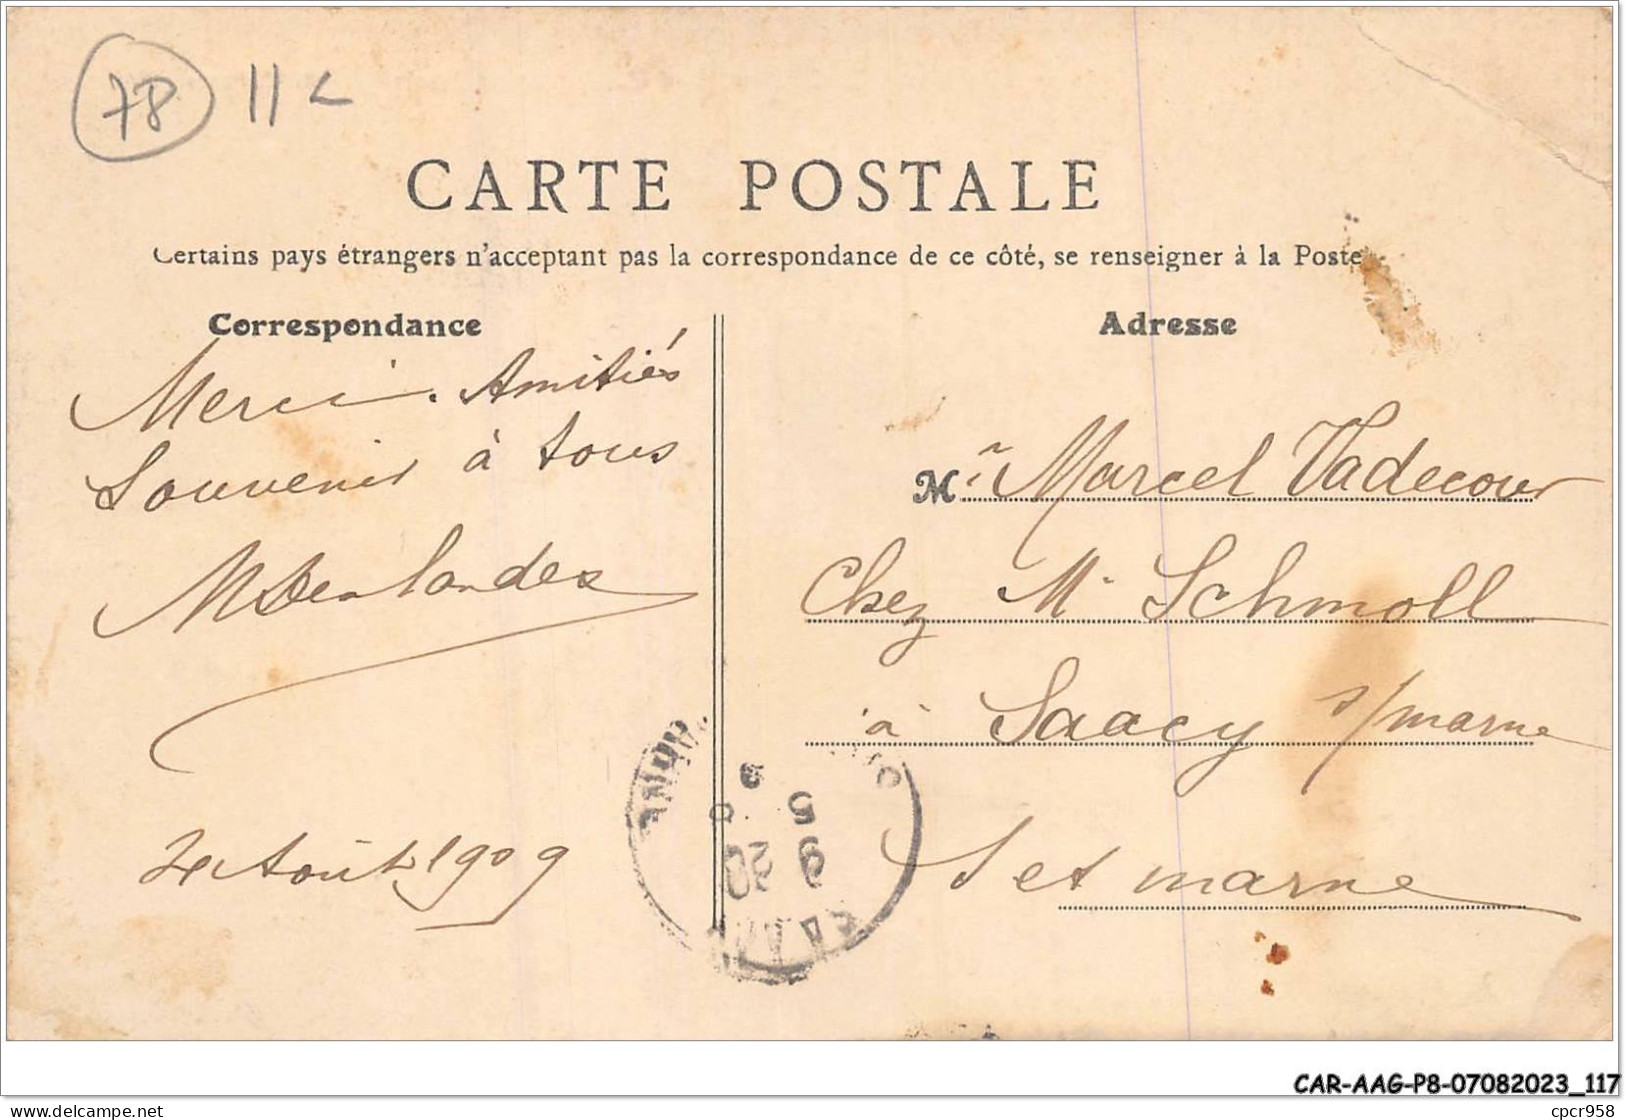 78 11
CARTE POSTALE
Certains pays étrangers n'acceptant pas la correspondance de ce côté, se renseigner à la Poste
Correspondance
Merci. Amitiés
Souvenir à tous
MDeslandes
4 Août 1909
Adresse
Mr Marcel Vadecour
Chez M. Schmoll
à Saacy s/marne
S et marne
9 20
5 8
9
CAR-AAG-P8-07082023_117
delcampe.net
cpcr958